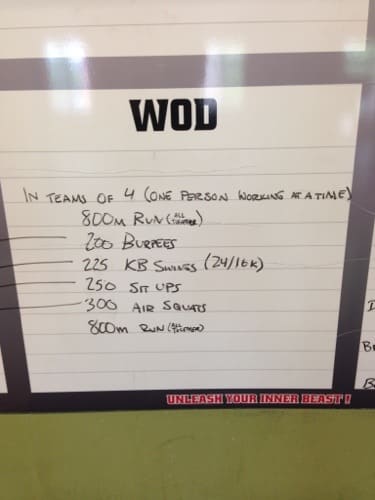 WOD
IN TEAMS OF 4 (ONE PERSON WORKING AT A TIME)
800M RUN (ALL TOGETHER)
200 BURPEES
225 KB SWINGS (24/16K)
250 SIT UPS
300 AIR SQUATS
800M RUN (ALL TOGETHER)
UNLEASH YOUR INNER BEAST!